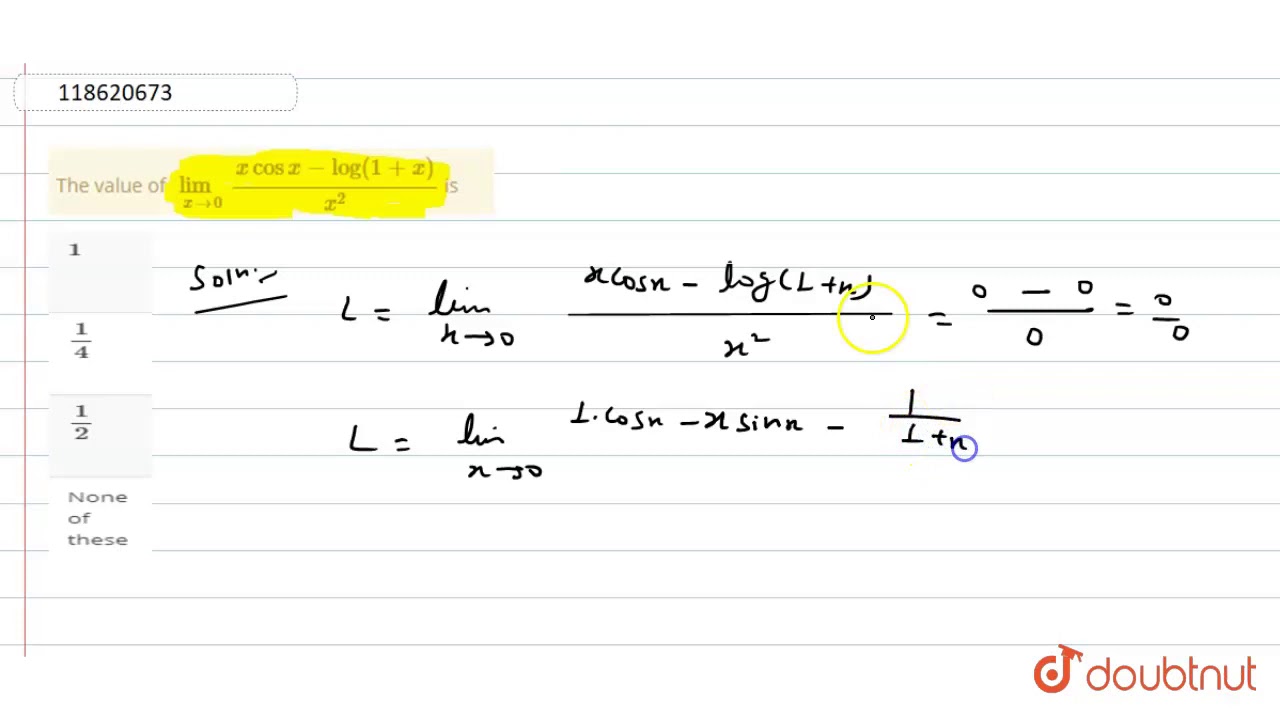 118620673
The value of lim x→0 (x cos x − log(1 + x)) / x² is
1
1/4
1/2
None
of
these
Soln:-
L = lim x→0 (x cosx − log(1+x)) / x² = (0 − 0) / 0 = 0/0
L = lim x→0 1·cosx − x sinx − 1/(1+x)
doubtnut